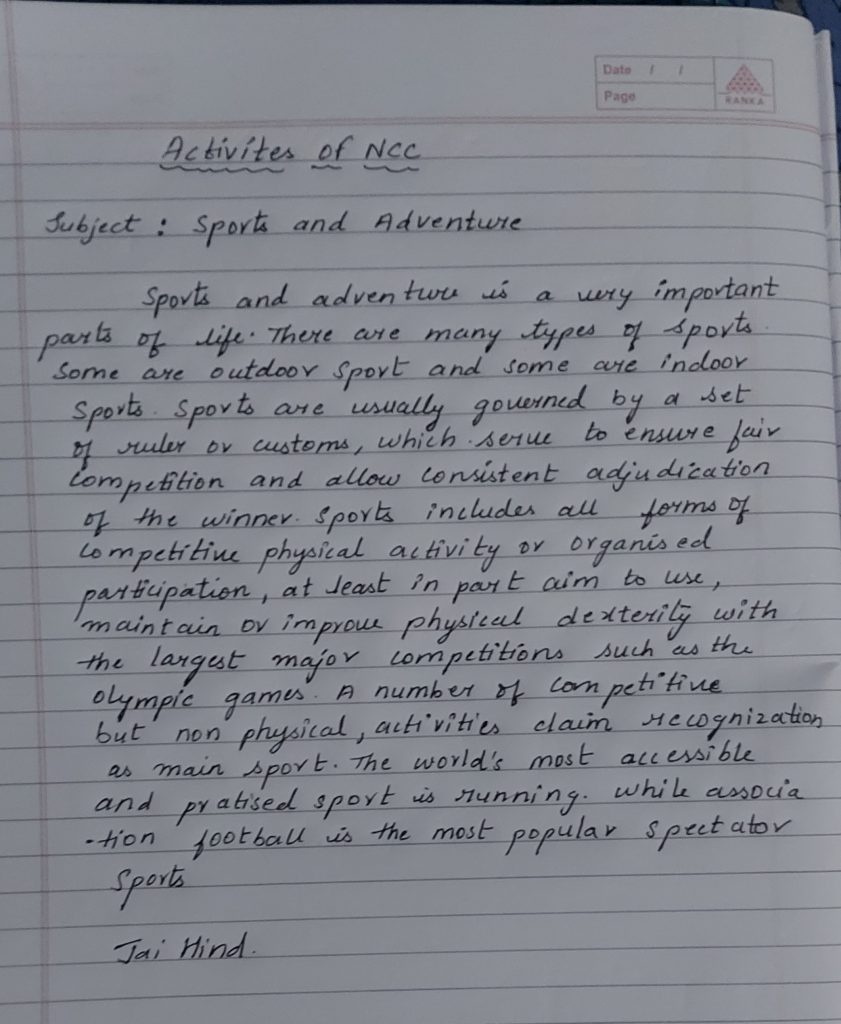 Date / /
Page
RANKA
Activites of NCC
Subject : Sports and Adventure
Sports and adventure is a very important
parts of life. There are many types of sports.
Some are outdoor sport and some are indoor
Sports. Sports are usually governed by a set
of ruler or customs, which serve to ensure fair
competition and allow consistent adjudication
of the winner. Sports includes all forms of
competitive physical activity or organised
participation, at least in part aim to use,
maintain or improve physical dexterity with
the largest major competitions such as the
olympic games. A number of competitive
but non physical, activities claim recognization
as main sport. The world's most accessible
and pratised sport is running. While associa
-tion football is the most popular spectator
Sports
Jai Hind.